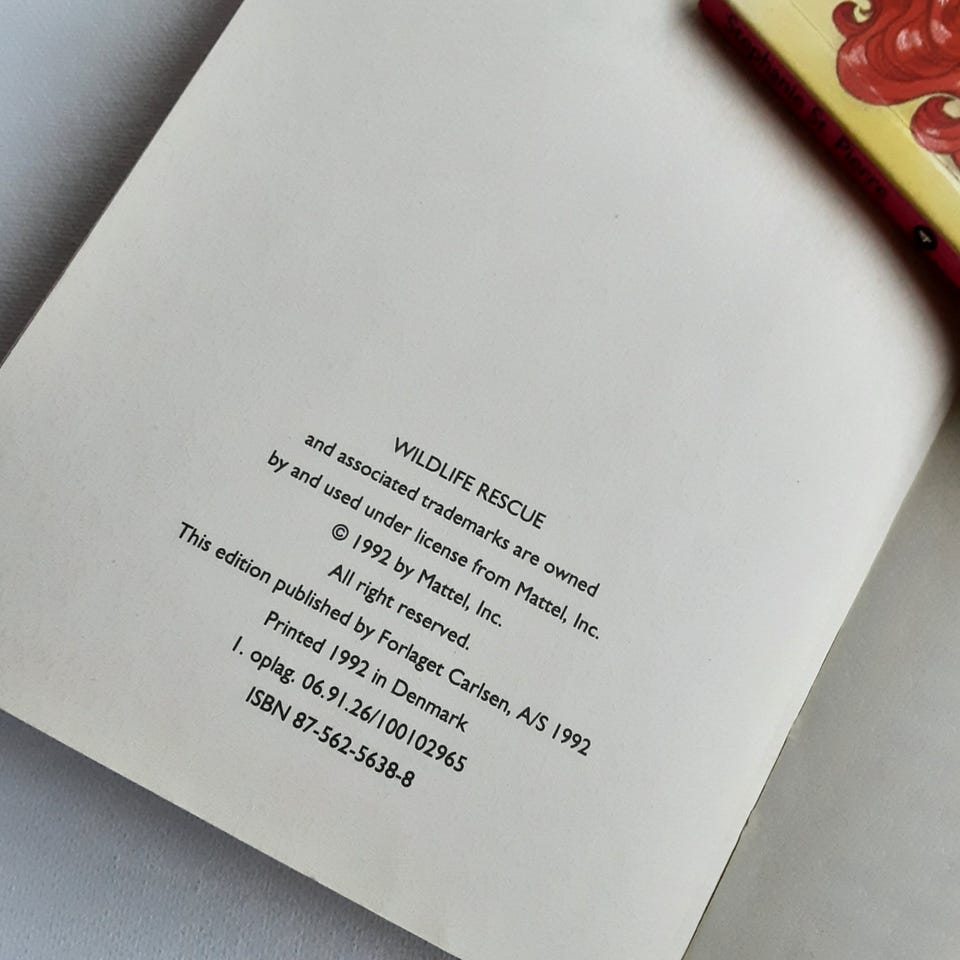 WILDLIFE RESCUE
and associated trademarks are owned
by and used under license from Mattel, Inc.
© 1992 by Mattel, Inc.
All right reserved.
This edition published by Forlaget Carlsen, A/S 1992
Printed 1992 in Denmark
1. oplag. 06.91.26/100102965
ISBN 87-562-5638-8
Stephanie St. Pierre 4